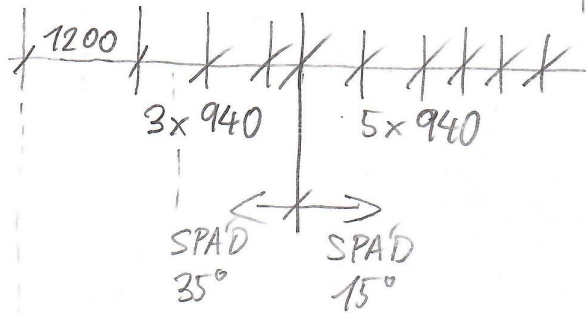 1200
3x 940 5x 940
SPÁD SPÁD
35° 15°